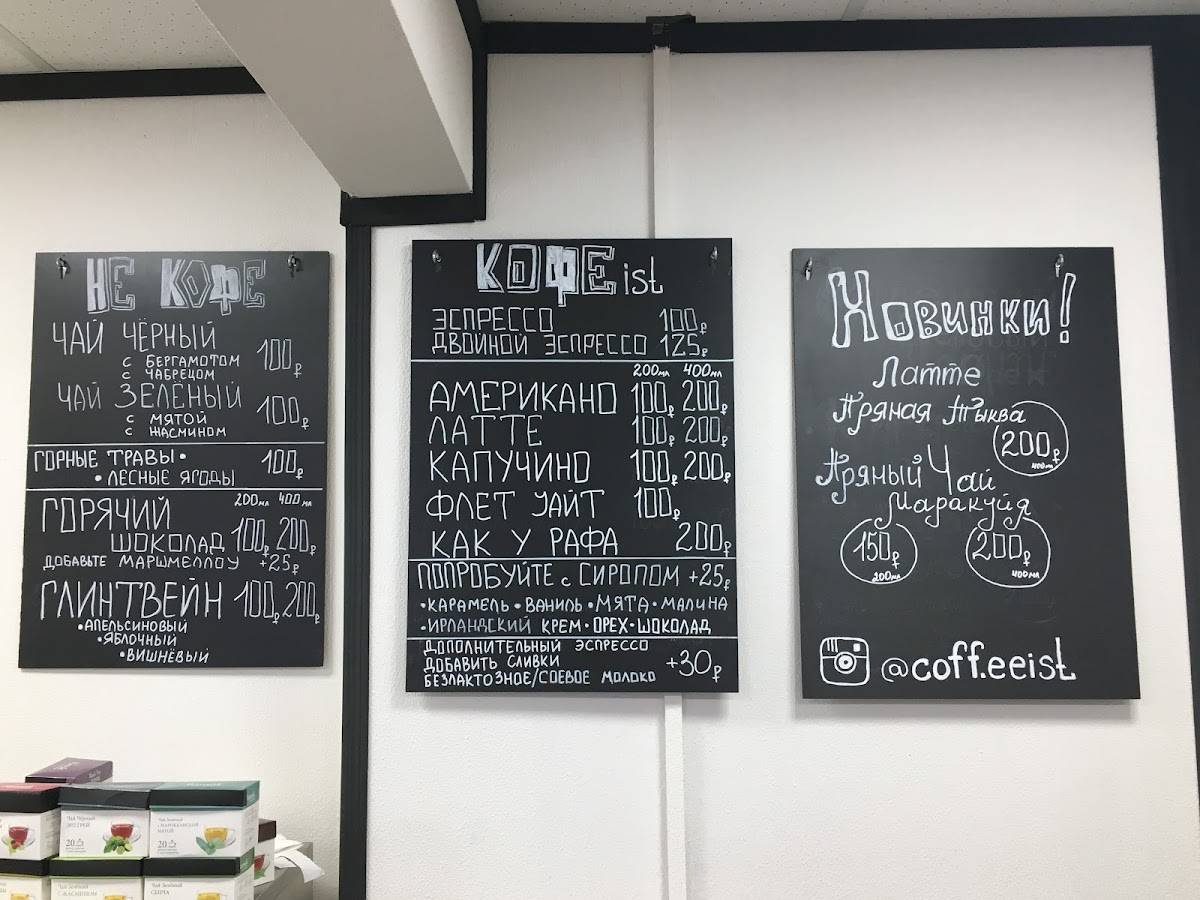 НЕ КОФЕ
ЧАЙ ЧЁРНЫЙ 100₽
С БЕРГАМОТОМ
С ЧАБРЕЦОМ
ЧАЙ ЗЕЛЁНЫЙ 100₽
С МЯТОЙ
С ЖАСМИНОМ
ГОРНЫЕ ТРАВЫ• 100₽
•ЛЕСНЫЕ ЯГОДЫ
200мл 400мл
ГОРЯЧИЙ
ШОКОЛАД 100₽ 200₽
ДОБАВЬТЕ МАРШМЕЛЛОУ +25₽
ГЛИНТВЕЙН 100₽ 200₽
•АПЕЛЬСИНОВЫЙ
•ЯБЛОЧНЫЙ
•ВИШНЁВЫЙ
КОФЕist
ЭСПРЕССО 100₽
ДВОЙНОЙ ЭСПРЕССО 125₽
200мл 400мл
АМЕРИКАНО 100₽ 200₽
ЛАТТЕ 100₽ 200₽
КАПУЧИНО 100₽ 200₽
ФЛЕТ УАЙТ 100₽
КАК У РАФА 200₽
ПОПРОБУЙТЕ с СИРОПОМ +25₽
•КАРАМЕЛЬ•ВАНИЛЬ•МЯТА•МАЛИНА
•ИРЛАНДСКИЙ КРЕМ•ОРЕХ•ШОКОЛАД
ДОПОЛНИТЕЛЬНЫЙ ЭСПРЕССО
ДОБАВИТЬ СЛИВКИ +30₽
БЕЗЛАКТОЗНОЕ/СОЕВОЕ МОЛОКО
Новинки!
Латте
Пряная Тыква
200₽
400мл
Пряный Чай
Маракуйя
150₽ 200₽
200мл 400мл
@coff.eeist
Чай Чёрный
ЭРЛ ГРЕЙ
20
Чай Зелёный
С МАРОККАНСКОЙ
МЯТОЙ
20
Чай Зелёный
С ЖАСМИНОМ
Чай Зелёный
СЕНЧА